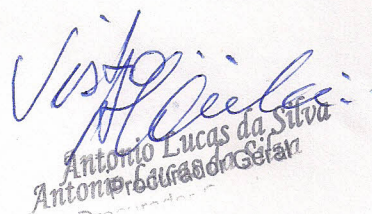 Visto
Antonio Lucas da Silva
Procurador Geral
Antonio Lucas da Silva
Procurador G